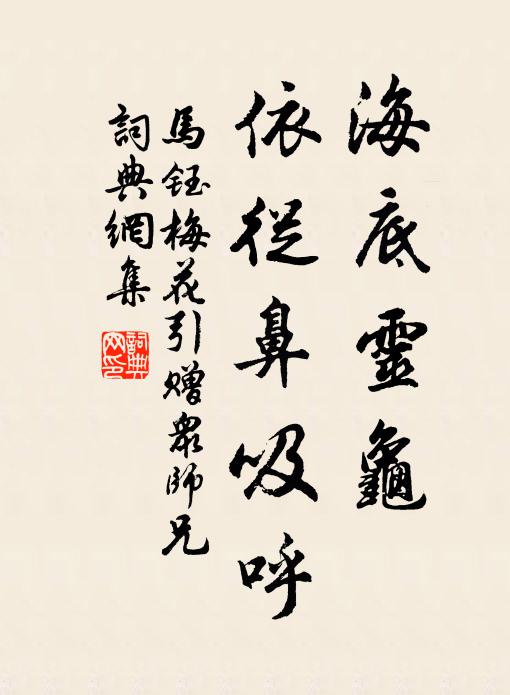 海底靈龜
依從鼻吸呼
馬鈺梅花引贈眾師兄
詞典網集
詞典網印